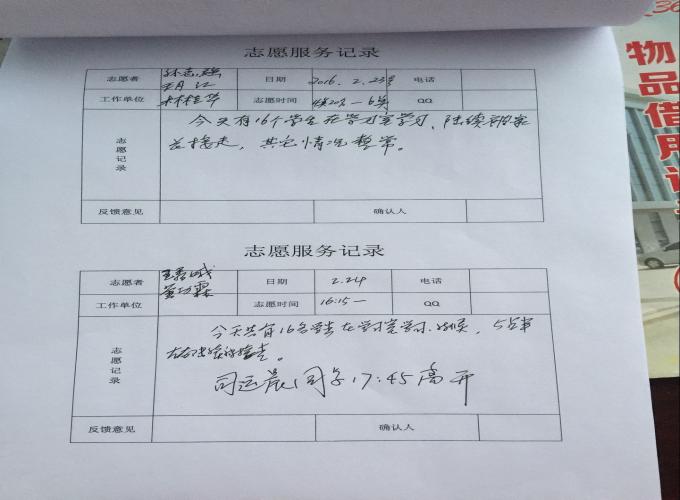 志愿服务记录
志愿者 孙志强 胡江 日期 2016.2.23号 电话
工作单位 林桂华 志愿时间 —6点 QQ
志愿记录
今天有16个学生在学习室学习,陆续
,其它情况整常。
反馈意见 确认人
志愿服务记录
志愿者 日期 2.24 电话
工作单位 志愿时间 16:15— QQ
志愿记录
今天共有16名学生在学习室学习、,5点半
左右陆续的接走。
司运晨同学17:45离开
反馈意见 确认人
36
物品借用